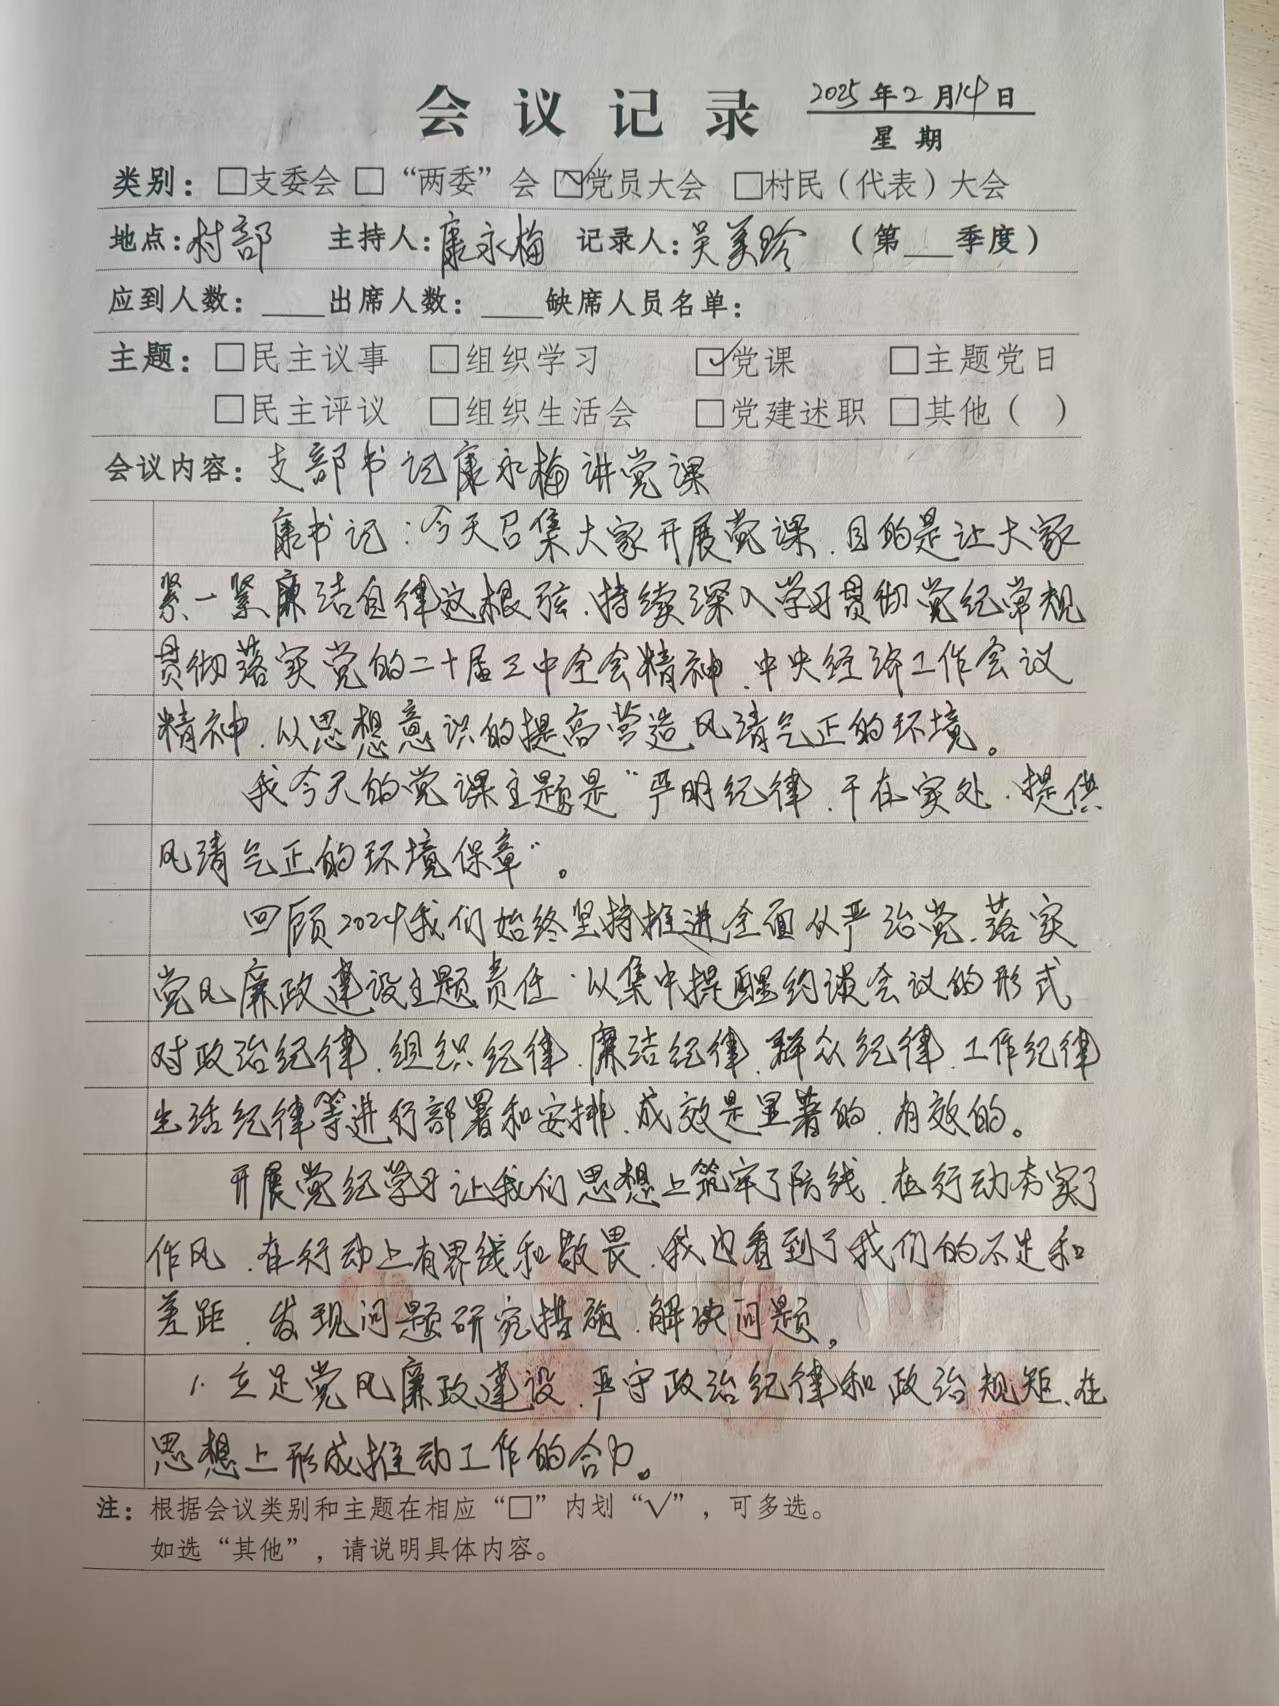 会议记录 2025年2月14日
星期
类别：□支委会 □“两委”会 ☑党员大会 □村民（代表）大会
地点：村部 主持人：康永梅 记录人：吴美玲 （第___季度）
应到人数：____出席人数：____缺席人员名单：
主题：□民主议事 □组织学习 ☑党课 □主题党日
□民主评议 □组织生活会 □党建述职 □其他（ ）
会议内容：支部书记康永梅讲党课
康书记：今天召集大家开展党课、目的是让大家
紧一紧廉洁自律这根弦、持续深入学习贯彻党纪常规
贯彻落实党的二十届三中全会精神、中央经济工作会议
精神、从思想意识的提高营造风清气正的环境。
我今天的党课主题是“严明纪律、干在实处、提供
风清气正的环境保章”。
回顾2024我们始终坚持推进全面从严治党、落实
党风廉政建设主题责任、以集中提醒约谈会议的形式
对政治纪律、组织纪律、廉洁纪律、群众纪律、工作纪律
生活纪律等进行部署和安排、成效是显著的、有效的。
开展党纪学习让我们思想上筑牢了防线、在行动夯实了
作风、在行动上有界线和敬畏、我也看到了我们的不足和
差距、发现问题研究措施、解决问题。
1.立足党风廉政建设、严守政治纪律和政治规矩、在
思想上形成推动工作的合力。
注：根据会议类别和主题在相应“□”内划“√”，可多选。
如选“其他”，请说明具体内容。